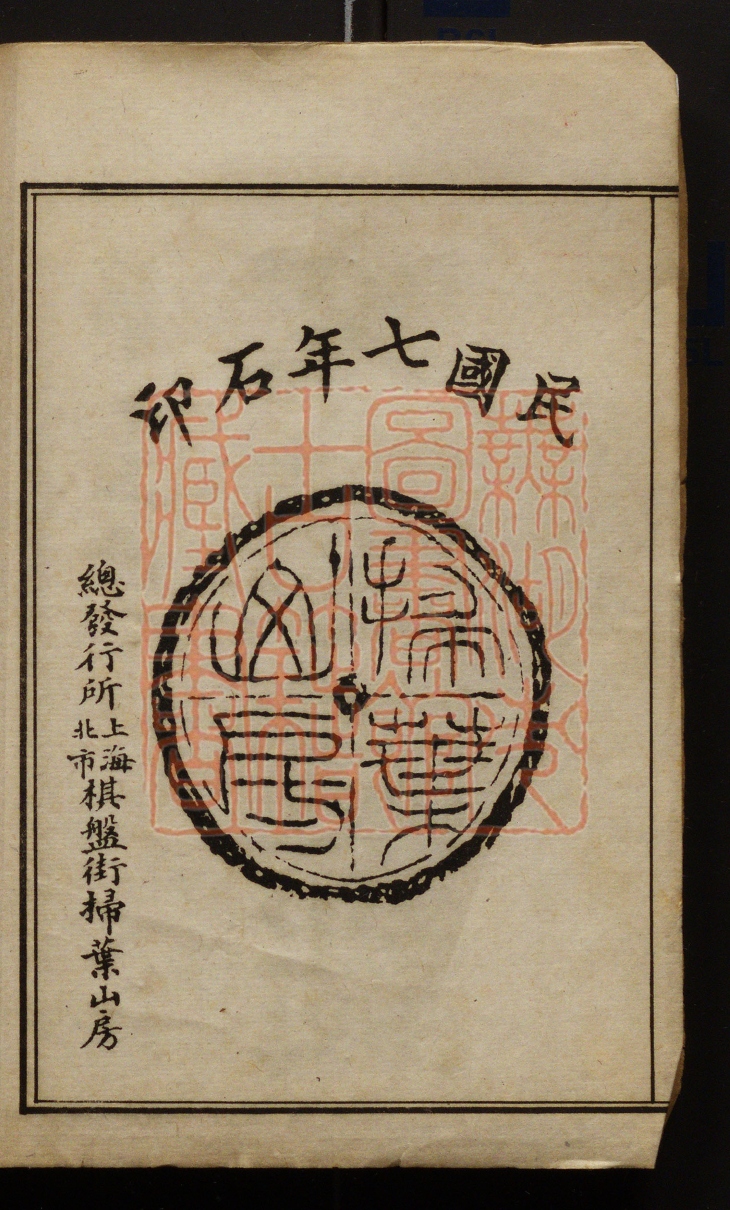 民國七年石印
掃葉山房
總發行所上海北市棋盤街掃葉山房